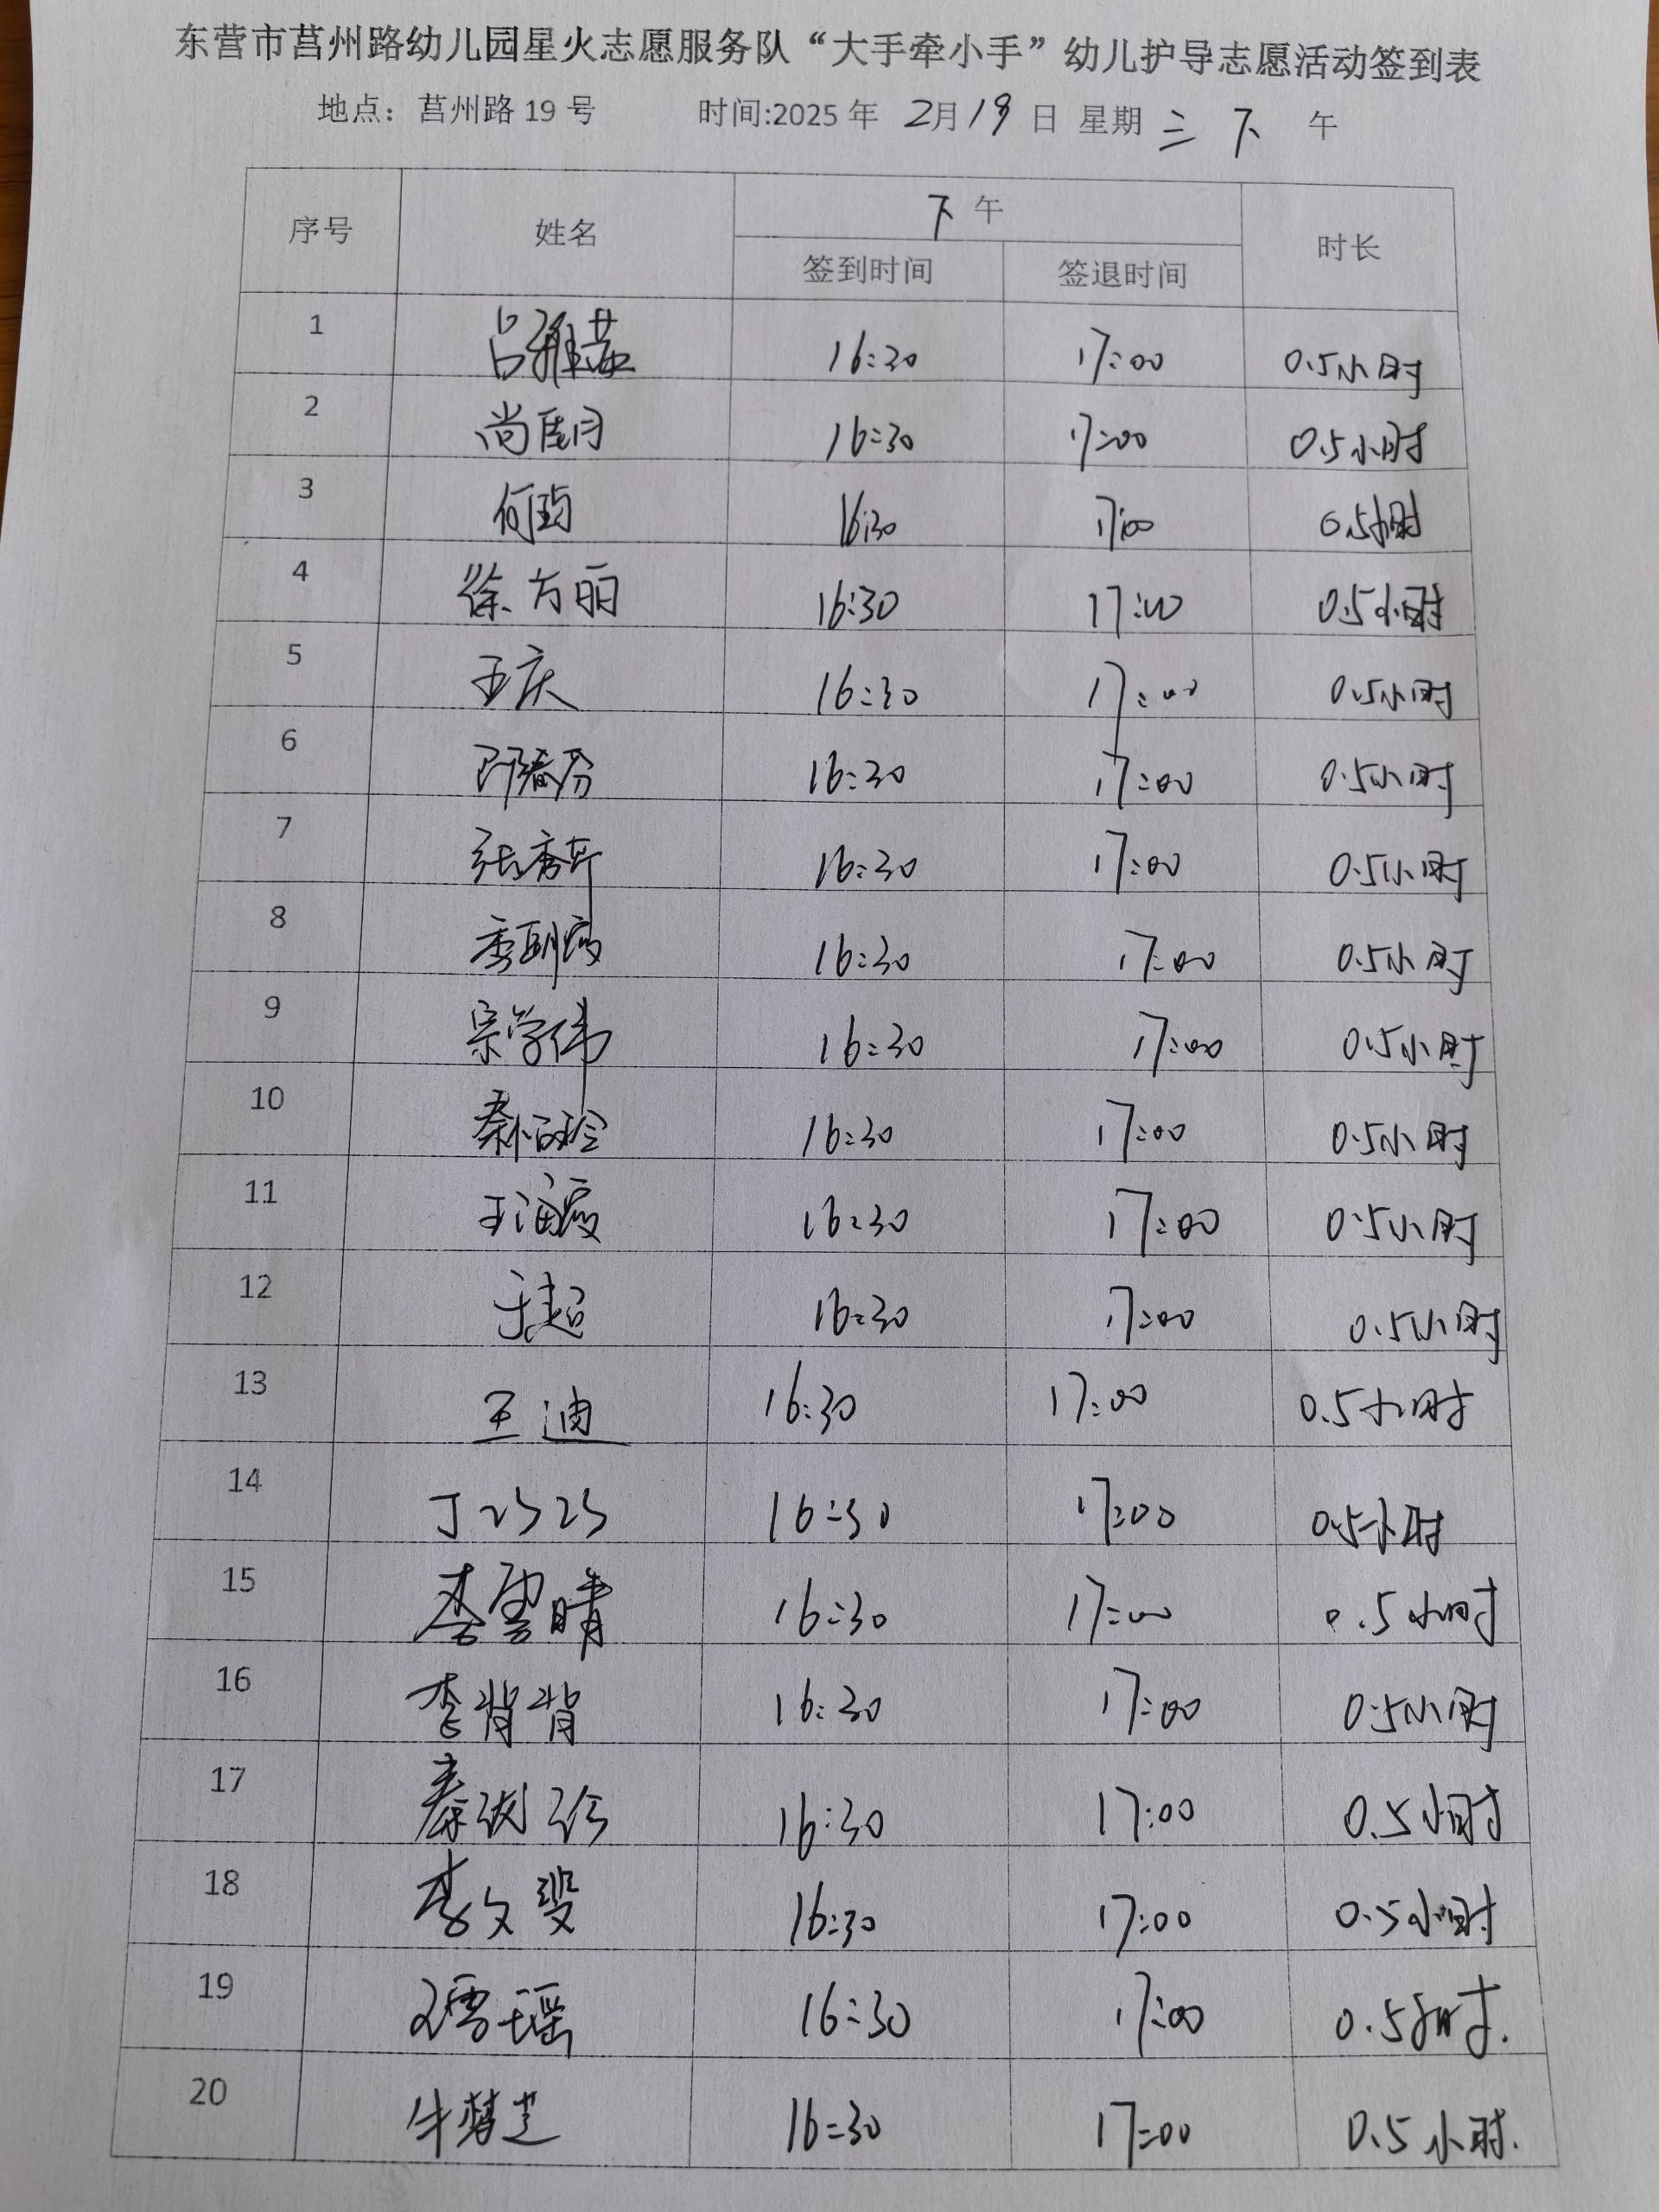 东营市莒州路幼儿园星火志愿服务队“大手牵小手”幼儿护导志愿活动签到表
地点：莒州路 19 号 时间:2025 年 2月19 日 星期 三 下 午
序号 姓名 下 午 时长
签到时间 签退时间
1 吕雅茹 16:30 17:00 0.5小时
2 尚佳月 16:30 17:00 0.5小时
3 何 16:30 17:00 0.5小时
4 徐方丽 16:30 17:00 0.5小时
5 王庆 16:30 17:00 0.5小时
6 邵春芬 16:30 17:00 0.5小时
7 张秀卉 16:30 17:00 0.5小时
8 16:30 17:00 0.5小时
9 宗学伟 16:30 17:00 0.5小时
10 秦怀玲 16:30 17:00 0.5小时
11 王海霞 16:30 17:00 0.5小时
12 于超 16:30 17:00 0.5小时
13 王迪 16:30 17:00 0.5小时
14 丁巧巧 16:30 17:00 0.5小时
15 李雲晴 16:30 17:00 0.5小时
16 李背背 16:30 17:00 0.5小时
17 秦 16:30 17:00 0.5小时
18 李文 16:30 17:00 0.5小时
19 雪瑶 16:30 17:00 0.5小时.
20 牛梦芝 16:30 17:00 0.5小时.